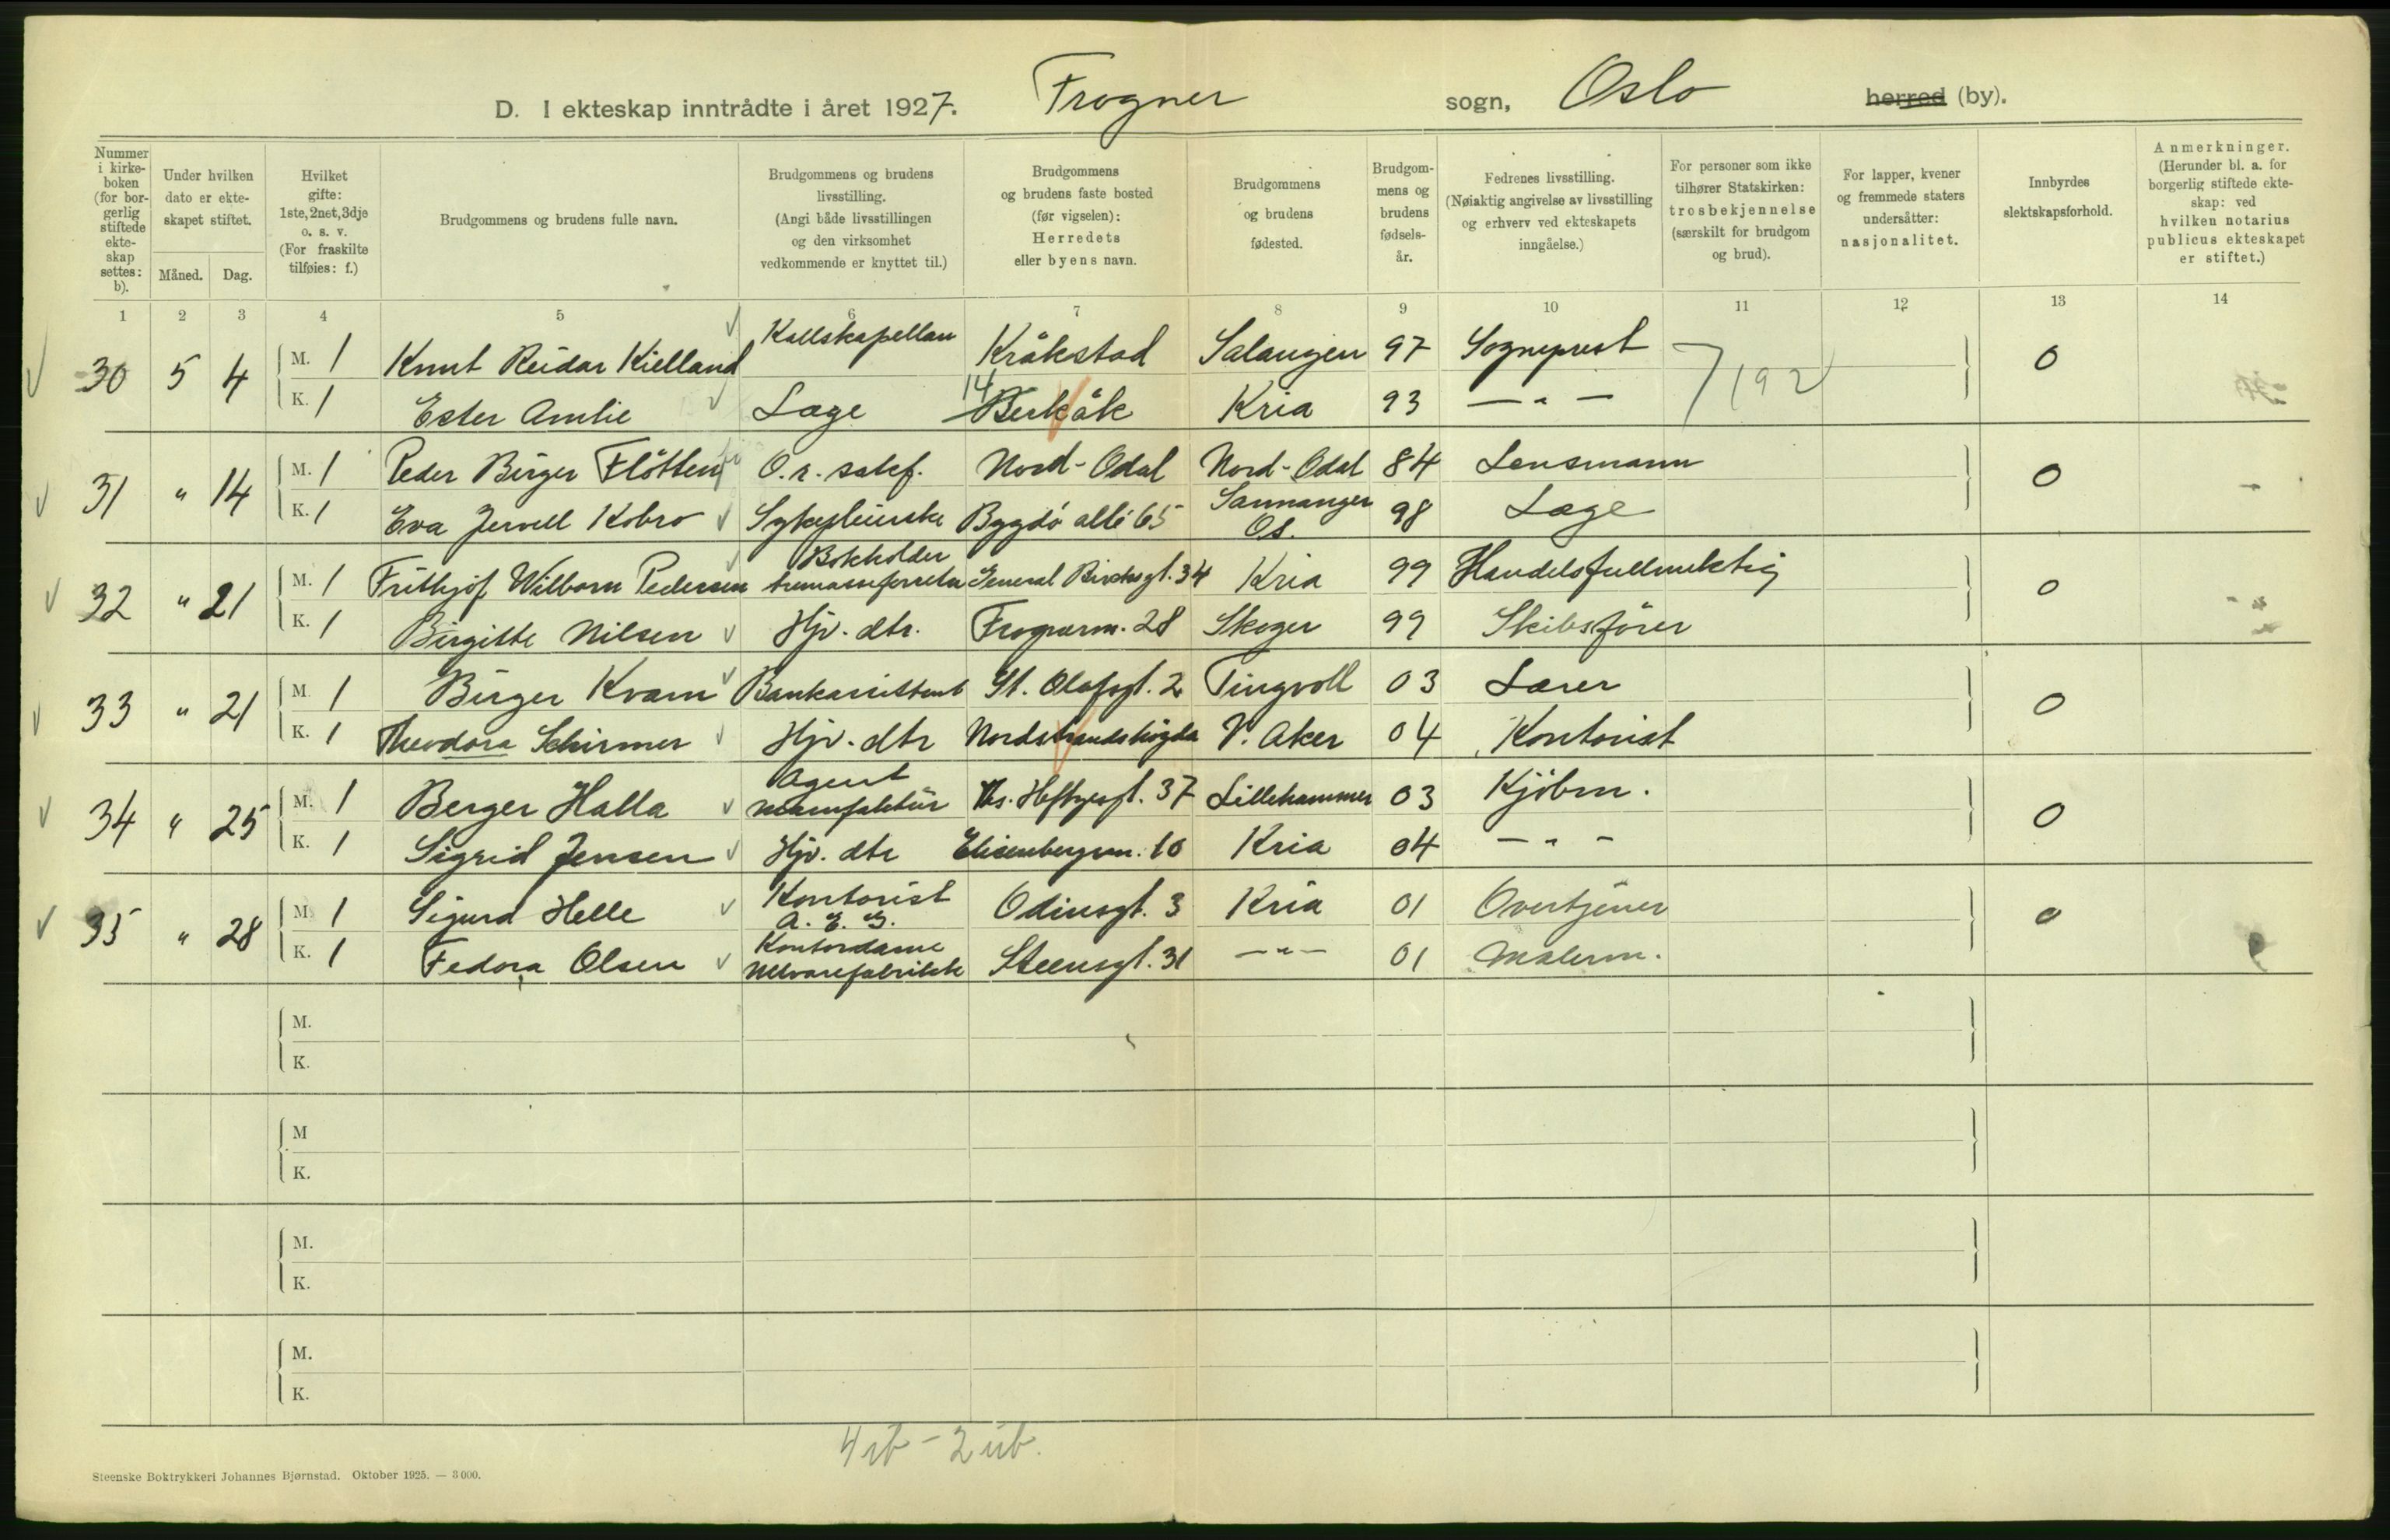 D. I ekteskap inntrådte i året 1927. Frogner sogn, Oslo herred (by).
Nummer i kirkeboken (for borgerlig stiftede ekteskap settes: b).
Under hvilken dato er ekteskapet stiftet.
Måned. Dag.
Hvilket gifte: 1ste, 2net, 3dje o. s. v. (For fraskilte tilføies: f.)
Brudgommens og brudens fulle navn.
Brudgommens og brudens livsstilling. (Angi både livsstillingen og den virksomhet vedkommende er knyttet til.)
Brudgommens og brudens faste bosted (før vigselen): Herredets eller byens navn.
Brudgommens og brudens fødested.
Brudgommens og brudens fødselsår.
Fedrenes livsstilling. (Nøiaktig angivelse av livsstilling og erhverv ved ekteskapets inngåelse.)
For personer som ikke tilhører Statskirken: trosbekjennelse (særskilt for brudgom og brud).
For lapper, kvener og fremmede staters undersåtter: nasjonalitet.
Innbyrdes slektskapsforhold.
Anmerkninger. (Herunder bl. a. for borgerlig stiftede ekteskap: ved hvilken notarius publicus ekteskapet er stiftet.)
1 2 3 4 5 6 7 8 9 10 11 12 13 14
30 5 4 M. 1 Knut Reidar Kielland Kallskapellan Kråkstad Salangen 97 Sogneprest 7/192 0
K. 1 Ester Amlie Læge 14 Berkåk Kria 93 — " —
31 " 14 M. 1 Peder Birger Flötten O.r. sakf. Nord-Odal Nord-Odal 84 Lensmann 0 -
K. 1 Eva Jervell Kobro Sykepleierske Bygdö allé 65 Samnanger Os. 98 Læge
32 " 21 M. 1 Frithjof Wilborn Pedersen Bokholder tremasseforretn General Birchsgt. 34 Kria 99 Handelsfullmektig 0
K. 1 Birgitte Nilsen Hjv. dtr. Frognerm. 28 Skoger 99 Skibsförer
33 " 21 M. 1 Birger Kvam Bankassistent St. Olafsgt. 2 Tingvoll 03 Lærer 0
K. 1 Theodora Schirmer Hjv. dtr Nordstrandshögda V. Aker 04 Kontorist
34 " 25 M. 1 Berger Halla Agent manufaktur Ths. Heftyesgt. 37 Lillehammer 03 Kjöbm. 0
K. 1 Sigrid Jensen Hjv. dtr Elisenbergsv. 10 Kria 04 — " —
35 " 28 M. 1 Sigurd Helle Kontorist A. E. G. Odinsgt. 3 Kria 01 Overtjener 0
K. 1 Fedora Olsen Kontordame Ulvarefabrikk Steensgt. 31 — " — 01 Malerm.
M.
K.
M
K.
M.
K.
M.
K.
4 ib - 2 ub.
Steenske Boktrykkeri Johannes Bjørnstad. Oktober 1925. — 3 000.